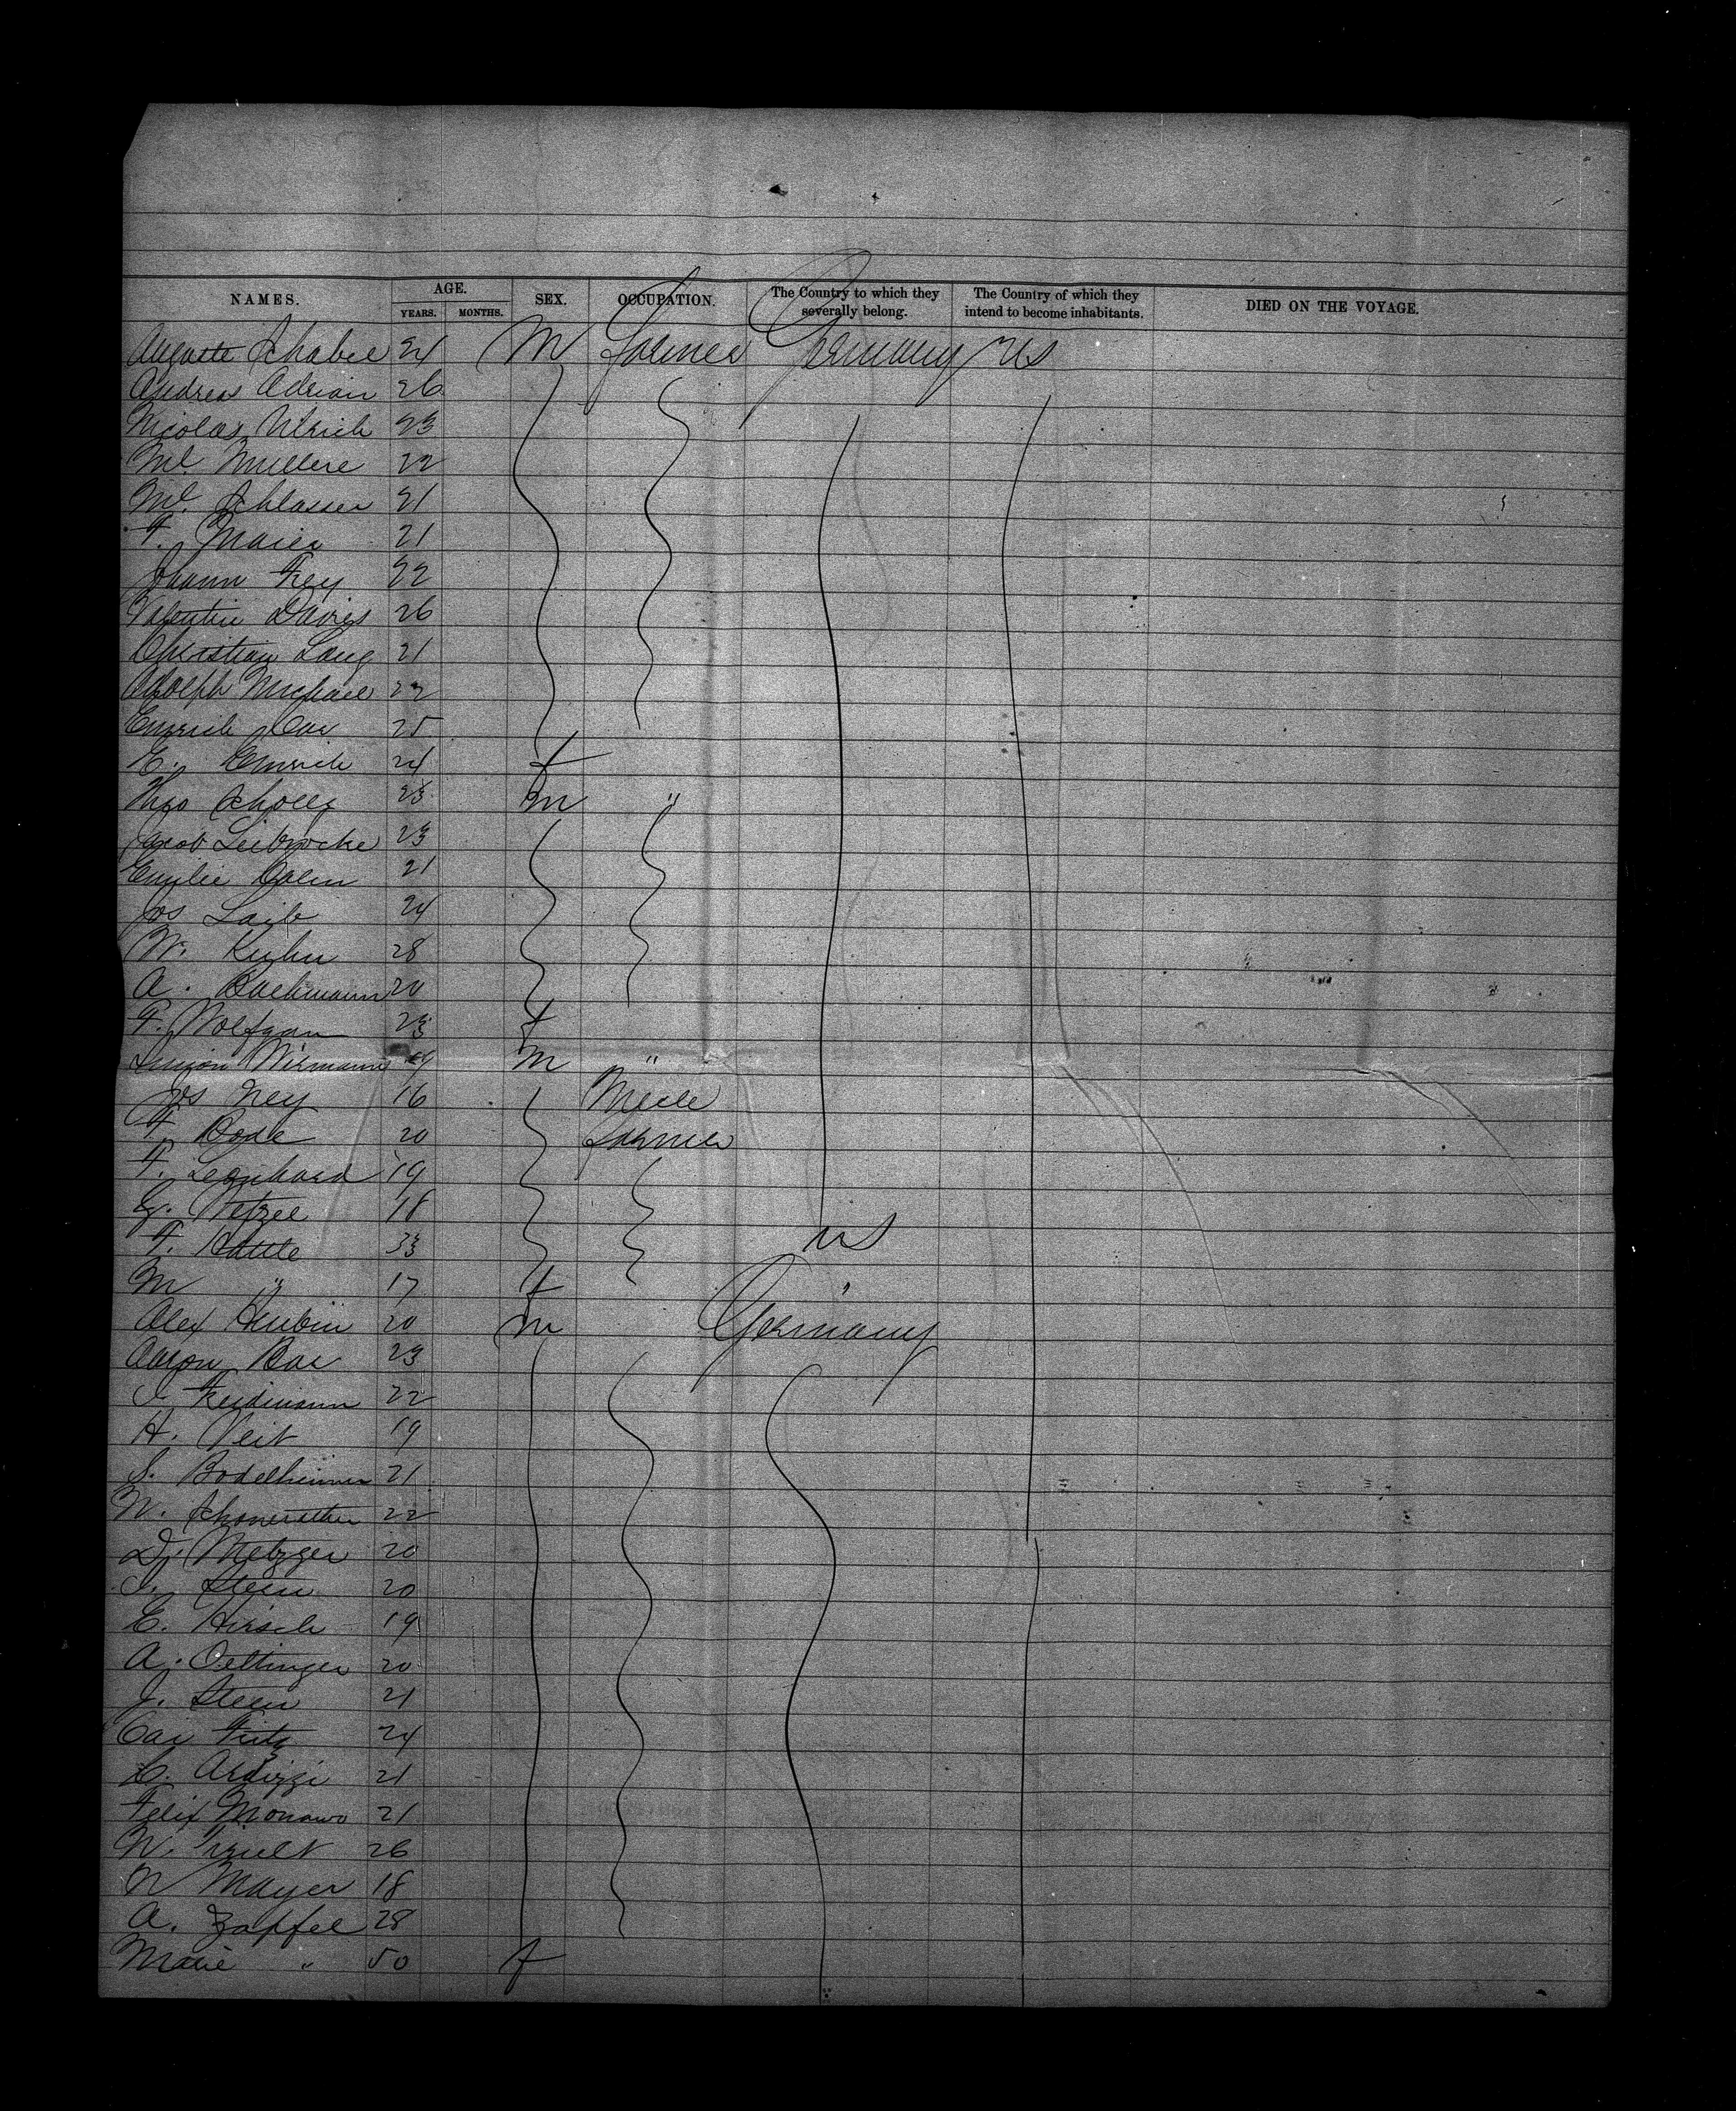 NAMES. AGE. SEX. OCCUPATION. The Country to which they severally belong. The Country of which they intend to become inhabitants. DIED ON THE VOYAGE.
YEARS. MONTHS.
Auguste Schabel 24 M Farmer Germany US
Andreas Adrian 26
Nicolas Ulrich 23
Ml. Mullere 22
Ml. Schlasser 21
F. Maier 21
Johann Frey 22
Valentin Davis 26
Christian Lang 21
Adolph Michael 22
Emrich Car 25
E. Emrich 24 f
Theo Scholly 23 M "
Jacob Leibrocke 23
Emilie Calm 21
Jos Laib 24
W. Kuhn 28
A. Bachmann 20
F. Wolfgan 23 f
Simon Wirmann M "
Jos Ney 16 Mecle
F. Bode 20 Farmer
F. Leonhard 19
G. Wetzel 18
F. Battle 33 US
M " 17 f "
Alex Heubin 20 m Germany
Aaron Bar 23
I. Freidmann 22
H. Veit 19
S. Bodelheimer 21
W. Schonerather 22
D. Metzger 20
I. Stein 20
E. Hirsch 19
A. Oettinger 20
J. Stein 21
Car Fritz 24
C. Ardizzi 21
Felix Monawo 21
N. 26
N Mayer 18
A. Zapfel 28
Marie " 50 f